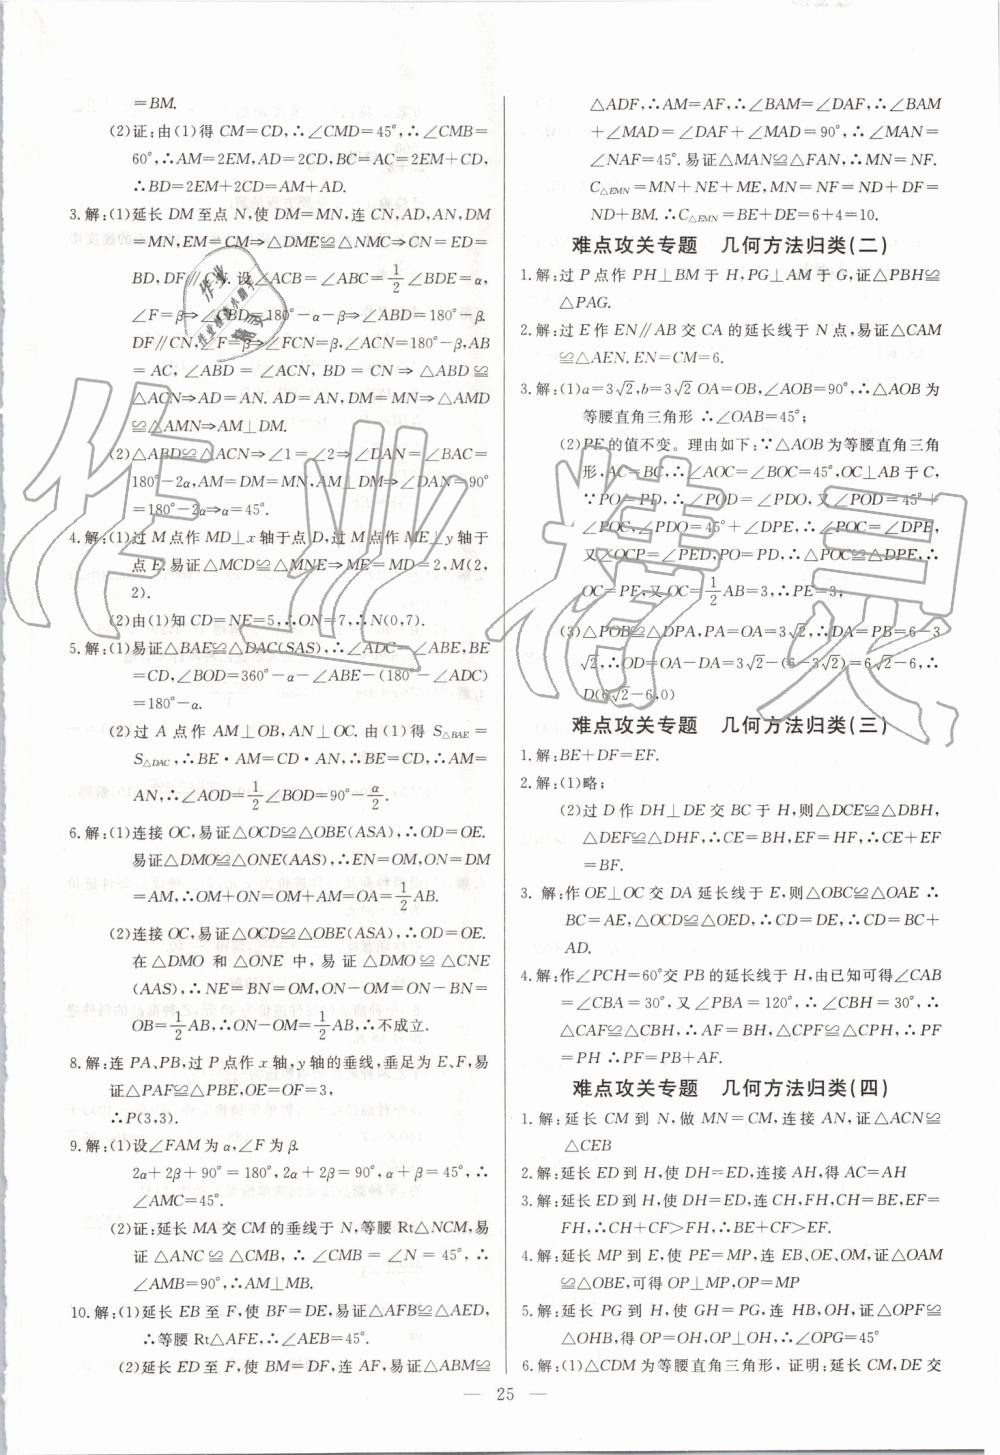 =BM.
(2)证:由(1)得 CM=CD,∴∠CMD=45°,∴∠CMB=
60°,∴AM=2EM,AD=2CD,BC=AC=2EM+2CD,
∴BD=2EM+2CD=AM+AD.
3.解:(1)延长 DM 至点 N,使 DM=MN,连 CN,AD,AN,DM
=MN,EM=CM⇒△DME≌△NMC⇒CN=ED=
BD,DF∥CN. 设∠ACB=∠ABC=1/2∠BDE=α,
∠F=β⇒∠CBD=180°-α-β⇒∠ABD=180°-β.
DF∥CN,∠F=β⇒∠FCN=β,∠ACN=180°-β,AB
=AC,∠ABD=∠ACN,BD=CN⇒△ABD≌
△ACN⇒AD=AN. AD=AN,DM=MN⇒△AMD
≌△AMN⇒AM⊥DM.
(2)△ABD≌△ACN⇒∠1=∠2⇒∠DAN=∠BAC=
180°-2α,AM=DM=MN,AM⊥DM⇒∠DAN=90°
=180°-2α⇒α=45°.
4.解:(1)过 M 点作 MD⊥x 轴于点 D,过 M 点作 ME⊥y 轴于
点 E.易证△MCD≌△MNE⇒ME=MD=2,M(2,
2).
(2)由(1)知 CD=NE=5,∴ON=7,∴N(0,7).
5.解:(1)易证△BAE≌△DAC(SAS),∴∠ADC=∠ABE,BE
=CD,∠BOD=360°-α-∠ABE-(180°-∠ADC)
=180°-α.
(2)过 A 点作 AM⊥OB,AN⊥OC. 由(1)得 S△BAE=
S△DAC,∴BE·AM=CD·AN,∴BE=CD,∴AM=
AN,∴∠AOD=1/2∠BOD=90°-α/2.
6.解:(1)连接 OC,易证△OCD≌△OBE(ASA),∴OD=OE.
易证△DMO≌△ONE(AAS),∴EN=OM,ON=DM
=AM,∴OM+ON=OM+AM=OA=1/2AB.
(2)连接 OC,易证△OCD≌△OBE(ASA),∴OD=OE.
在△DMO 和△ONE 中,易证△DMO≌△CNE
(AAS),∴NE=BN=OM,ON-OM=ON-BN=
OB=1/2AB,∴ON-OM=1/2AB,∴不成立.
8.解:连 PA,PB,过 P 点作 x 轴,y 轴的垂线,垂足为 E、F,易
证△PAF≌△PBE,OE=OF=3,
∴P(3,3).
9.解:(1)设∠FAM 为 α,∠F 为 β.
2α+2β+90°=180°,2α+2β=90°,α+β=45°,∴
∠AMC=45°.
(2)证:延长 MA 交 CM 的垂线于 N,等腰 Rt△NCM,易
证△ANC≌△CMB,∴∠CMB=∠N=45°,∴
∠AMB=90°,∴AM⊥MB.
10.解:(1)延长 EB 至 F,使 BF=DE,易证△AFB≌△AED,
∴等腰 Rt△AFE,∴∠AEB=45°.
(2)延长 ED 至 F,使 BM=DF,连 AF,易证△ABM≌
△ADF,∴AM=AF,∴∠BAM=∠DAF,∴∠BAM
+∠MAD=∠DAF+∠MAD=90°,∴∠MAN=
∠NAF=45°. 易证△MAN≌△FAN,∴MN=NF.
C△EMN=MN+NE+ME,MN=NF=ND+DF=
ND+BM.∴C△EMN=BE+DE=6+4=10.
难点攻关专题 几何方法归类(二)
1.解:过 P 点作 PH⊥BM 于 H,PG⊥AM 于 G,证△PBH≌
△PAG.
2.解:过 E 作 EN∥AB 交 CA 的延长线于 N 点,易证△CAM
≌△AEN. EN=CM=6.
3.解:(1)a=3√2,b=3√2 OA=OB,∠AOB=90°,∴△AOB 为
等腰直角三角形 ∴∠OAB=45°;
(2)PE 的值不变。理由如下:∵△AOB 为等腰直角三角
形,AC=BC,∴∠AOC=∠BOC=45°,OC⊥AB 于 C,
∵PO=PD,∴∠POD=∠PDO,又∠POD=45°+
∠POC,∠PDO=45°+∠DPE,∴∠POC=∠DPE,
又∠OCP=∠PED,PO=PD,∴△POC≌△DPE,∴
OC=PE,又 OC=1/2AB=3,∴PE=3,
(3)△POB≌△DPA,PA=OA=3√2,∴DA=PB=6-3
√2,∴OD=OA-DA=3√2-(6-3√2)=6√2-6,∴
D(6√2-6,0)
难点攻关专题 几何方法归类(三)
1.解:BE+DF=EF.
2.解:(1)略;
(2)过 D 作 DH⊥DE 交 BC 于 H,则△DCE≌△DBH,
△DEF≌△DHF,∴CE=BH,EF=HF,∴CE+EF
=BF.
3.解:作 OE⊥OC 交 DA 延长线于 E,则△OBC≌△OAE ∴
BC=AE,△OCD≌△OED,∴CD=DE,∴CD=BC+
AD.
4.解:作∠PCH=60°交 PB 的延长线于 H,由已知可得∠CAB
=∠CBA=30°,又∠PBA=120°,∴∠CBH=30°,∴
△CAF≌△CBH,∴AF=BH,△CPF≌△CPH,∴PF
=PH ∴PF=PB+AF.
难点攻关专题 几何方法归类(四)
1.解:延长 CM 到 N,做 MN=CM,连接 AN,证△ACN≌
△CEB
2.解:延长 ED 到 H,使 DH=ED,连接 AH,得 AC=AH
3.解:延长 ED 到 H,使 DH=ED,连 CH,FH,CH=BE,EF=
FH,∴CH+CF>FH,∴BE+CF>EF.
4.解:延长 MP 到 E,使 PE=MP,连 EB、OE、OM,证△OAM
≌△OBE,可得 OP⊥MP,OP=MP
5.解:延长 PG 到 H,使 GH=PG,连 HB,OH,证△OPF≌
△OHB,得 OP=OH,OP⊥OH,∴∠OPG=45°
6.解:(1)△CDM 为等腰直角三角形,证明:延长 CM,DE 交
— 25 —
作业精灵